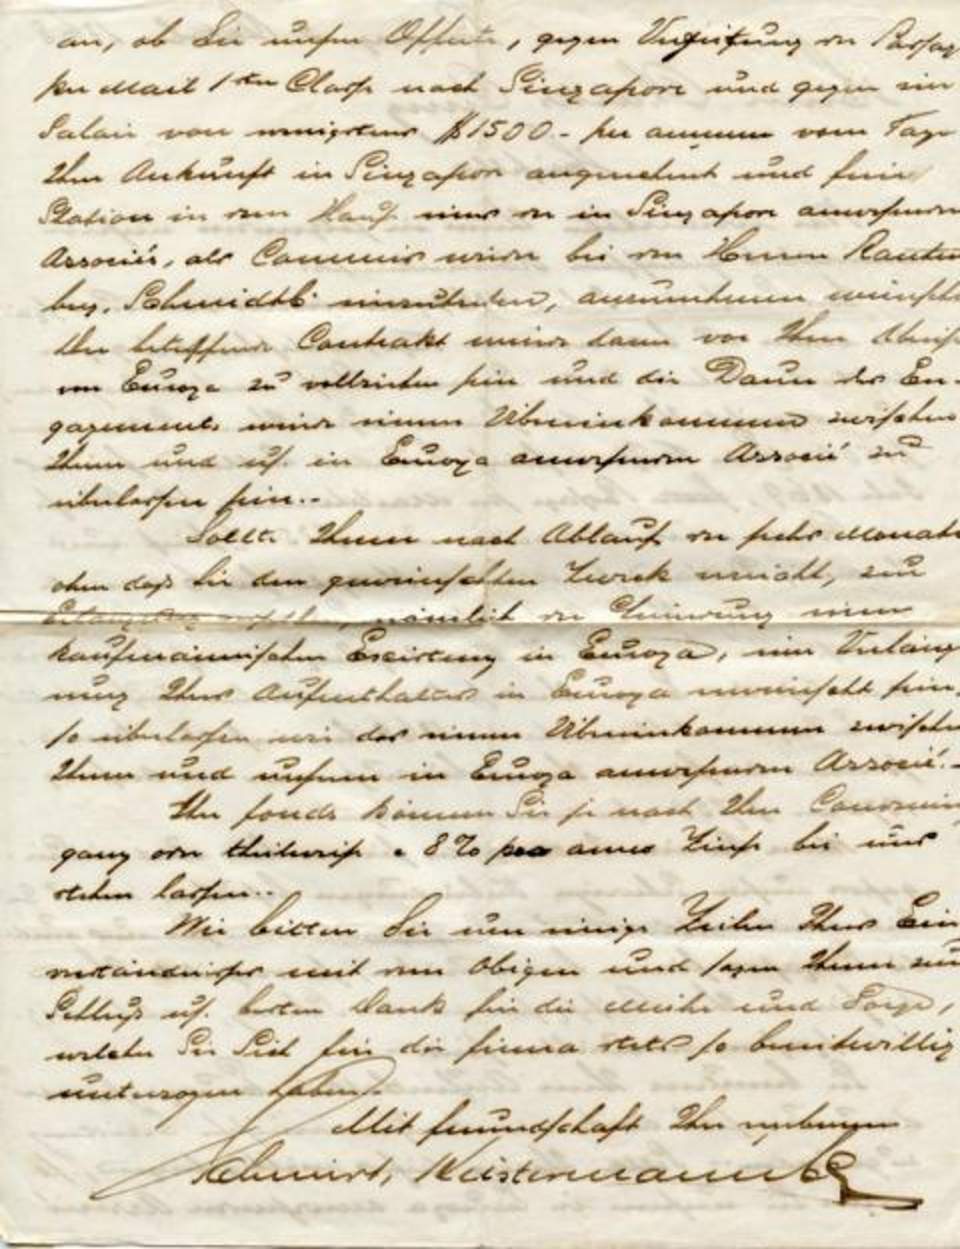 an, ob Sie unsere Offerte, gegen Vergütung der Passag
per Mail 1ten Classe nach Singapore und gegen ein
Salair von wenigstens $1500.- per annum vom Tage
Ihrer Ankunft in Singapore angenehmt und
Station in dem Hause eines der in Singapore anwesenden
Associés, als Commis wieder bei den Herren Rauten
berg, Schmidt & einzutreten, anzunehmen wünschen
Der betreffende Contrakt würde dann vor Ihrer Abreise
von Europa zu vollziehen sein und die Dauer des En-
gagements würde einem Übereinkommen zwischen
Ihnen und uns. in Europa anwesenden Associé zu
überlassen sein.-
Sollte Ihnen nach Ablauf der sechs Monate
ohne dass Sie den gewünschten Zweck erreicht, zur
nämlich der einer
kaufmännischen Existenz in Europa, eine Verlänge
rung Ihres Aufenthaltes in Europa erwünscht sein,
so überlassen wir das einem Übereinkommen zwischen
Ihnen und unserem in Europa anwesenden Associé.-
Ihre fonds können Sie je nach Ihrer Convenienz
ganz oder theilweise a 8% pro anno Zins bei uns
stehen lassen.-
Wir bitten Sie um einige Zeilen Ihres Ein
verständnisses mit dem Obigen und sagen Ihnen zum
Schluss uns. besten Dank für die Mühe und Sorge,
welcher Sie Sich für die firma stets so bereitwillig
unterzogen haben.
Mit freundschaft Ihre ergebenen